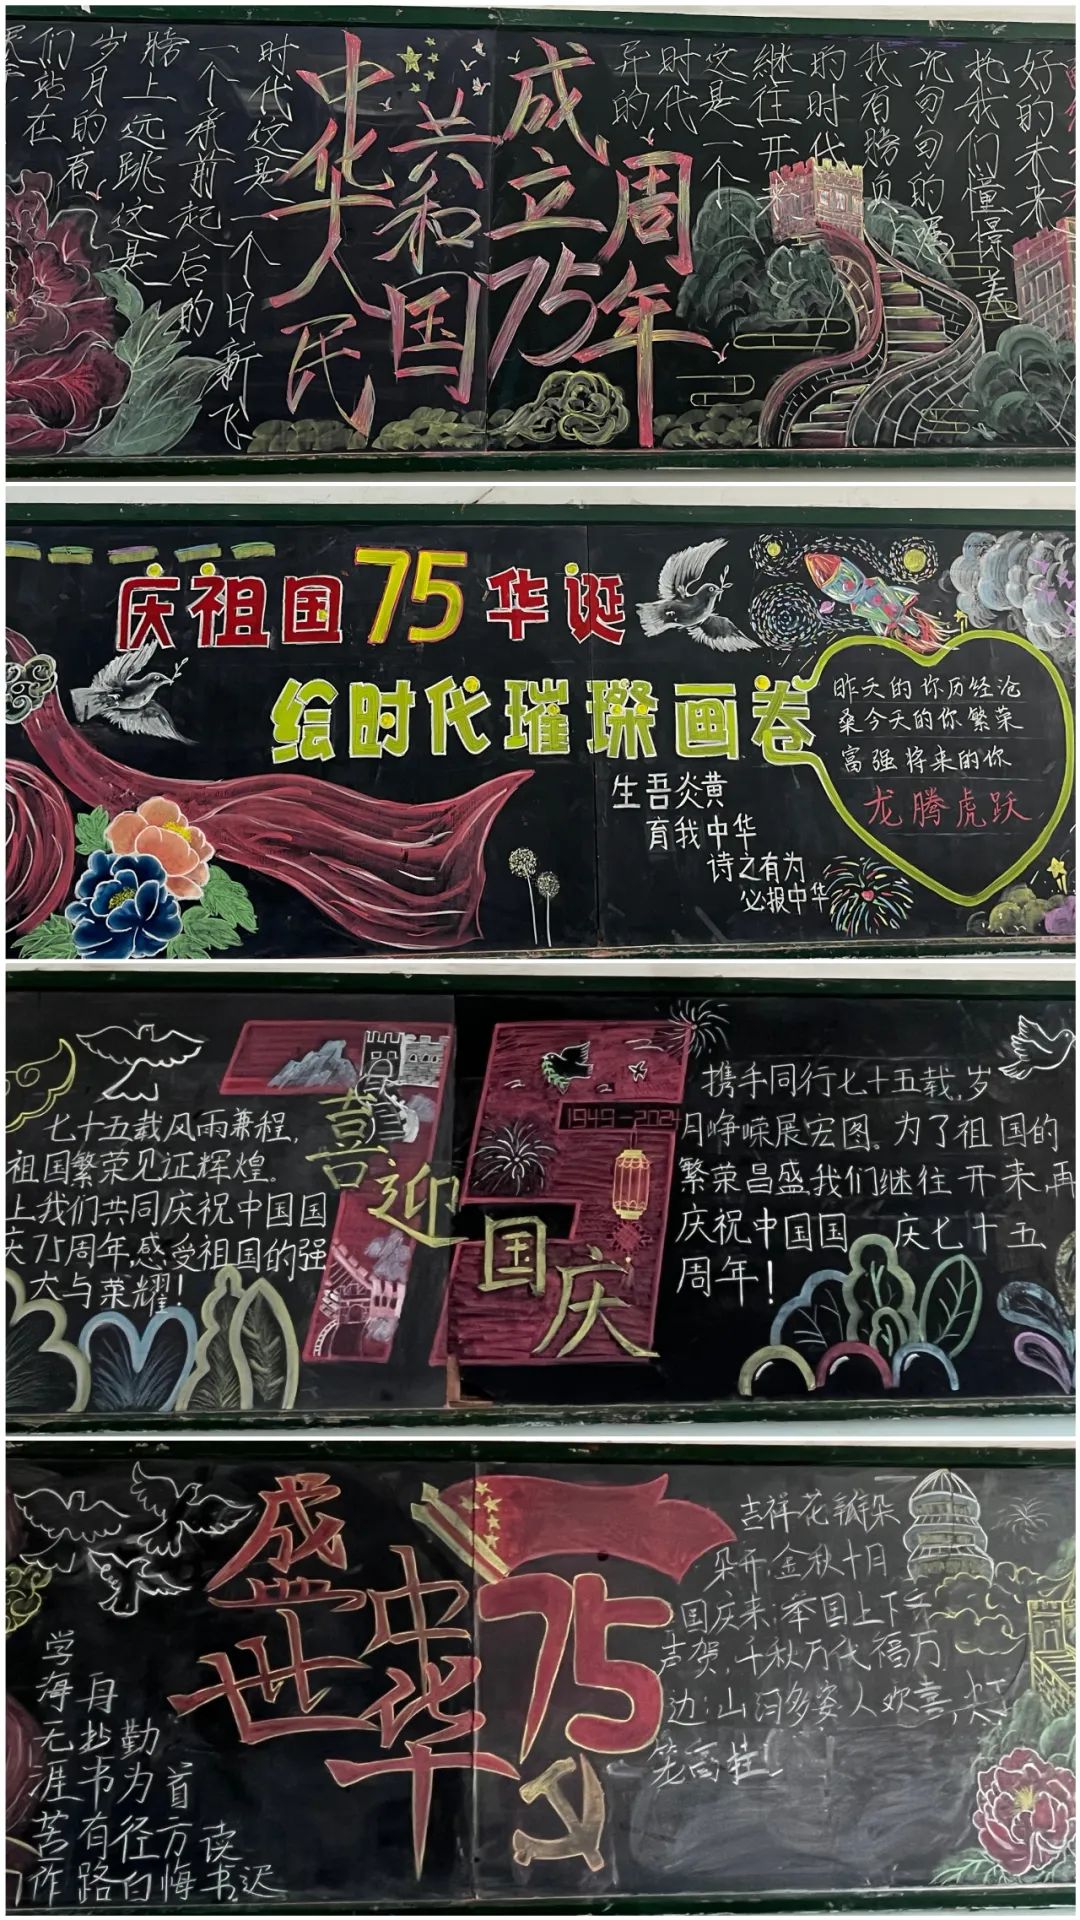 们站在
岁月的有
膀上远跳这是
一个承前起后的
时代这是一个日新飞
中华人民
共和国
成立
75周年
异的
时代
这是一个
继往开来
的时代
我有胜负
沉甸甸的嘱
托我们憧憬着
好的未来
庆祖国75华诞
绘时代璀璨画卷
生吾炎黄
育我中华
诗之有为
必报中华
昨天的你历经沧
桑今天的你繁荣
富强将来的你
龙腾虎跃
七十五载风雨兼程,
祖国繁荣见证辉煌。
上我们共同庆祝中国国
庆75周年,感受祖国的强
大与荣耀!
喜迎国庆
1949-2024
携手同行七十五载,岁
月峥嵘展宏图。为了祖国的
繁荣昌盛我们继往开来,再
庆祝中国国 庆七十五
周年!
学海无涯苦作
舟抄书有路
勤为径白
首方悔
读书迟
盛世
中华
75
吉祥花瓣朵
朵开,金秋十月
国庆来;举国上下
声贺,千秋万代福万
边;山河多姿人欢喜,灯
笼高挂!